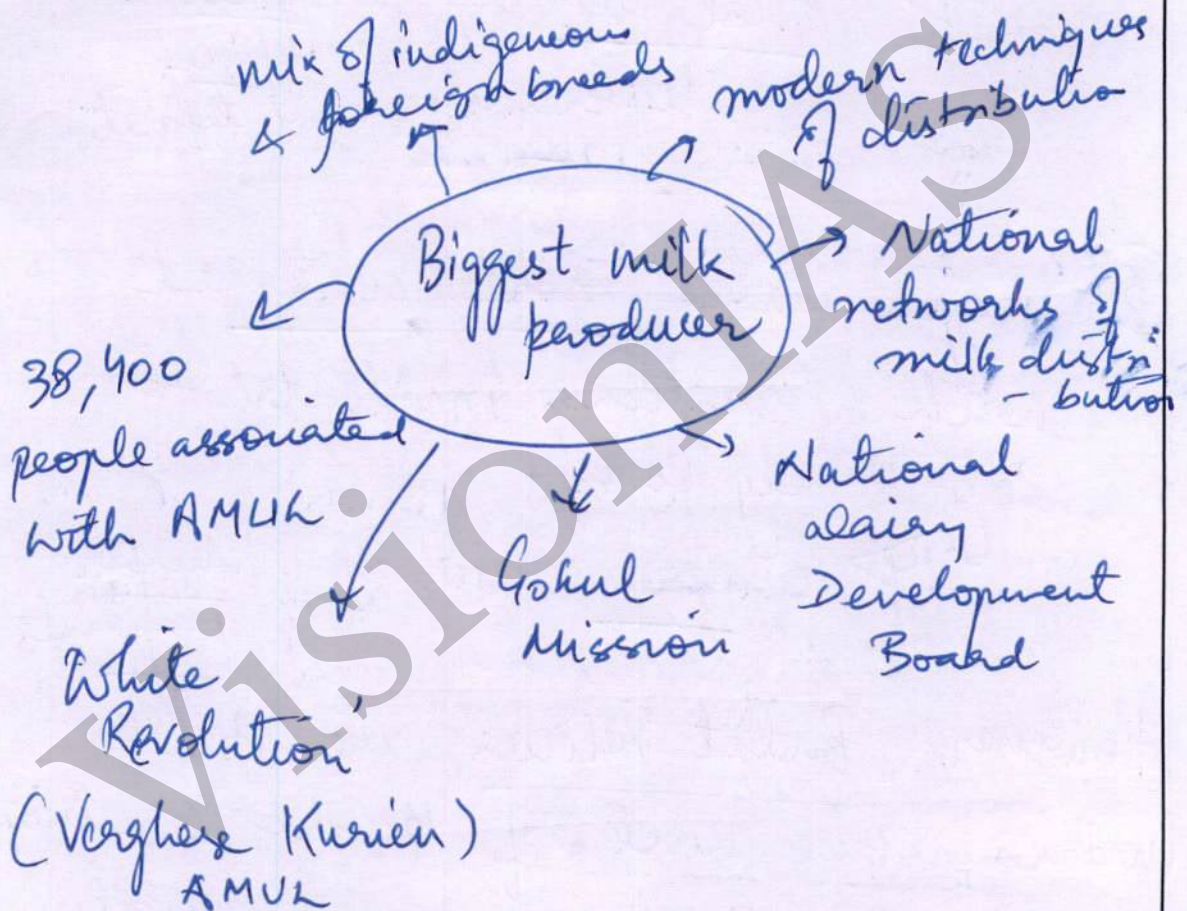 mix of indigeneous
& foreign breeds
modern techniques
of distributio
Biggest milk
producer
National
networks of
milk distri
- bution
38,400
people associated
with AMUL
National
dairy
Development
Board
Gokul
Mission
White
Revolution
(Verghese Kurien)
AMUL
VisionIAS